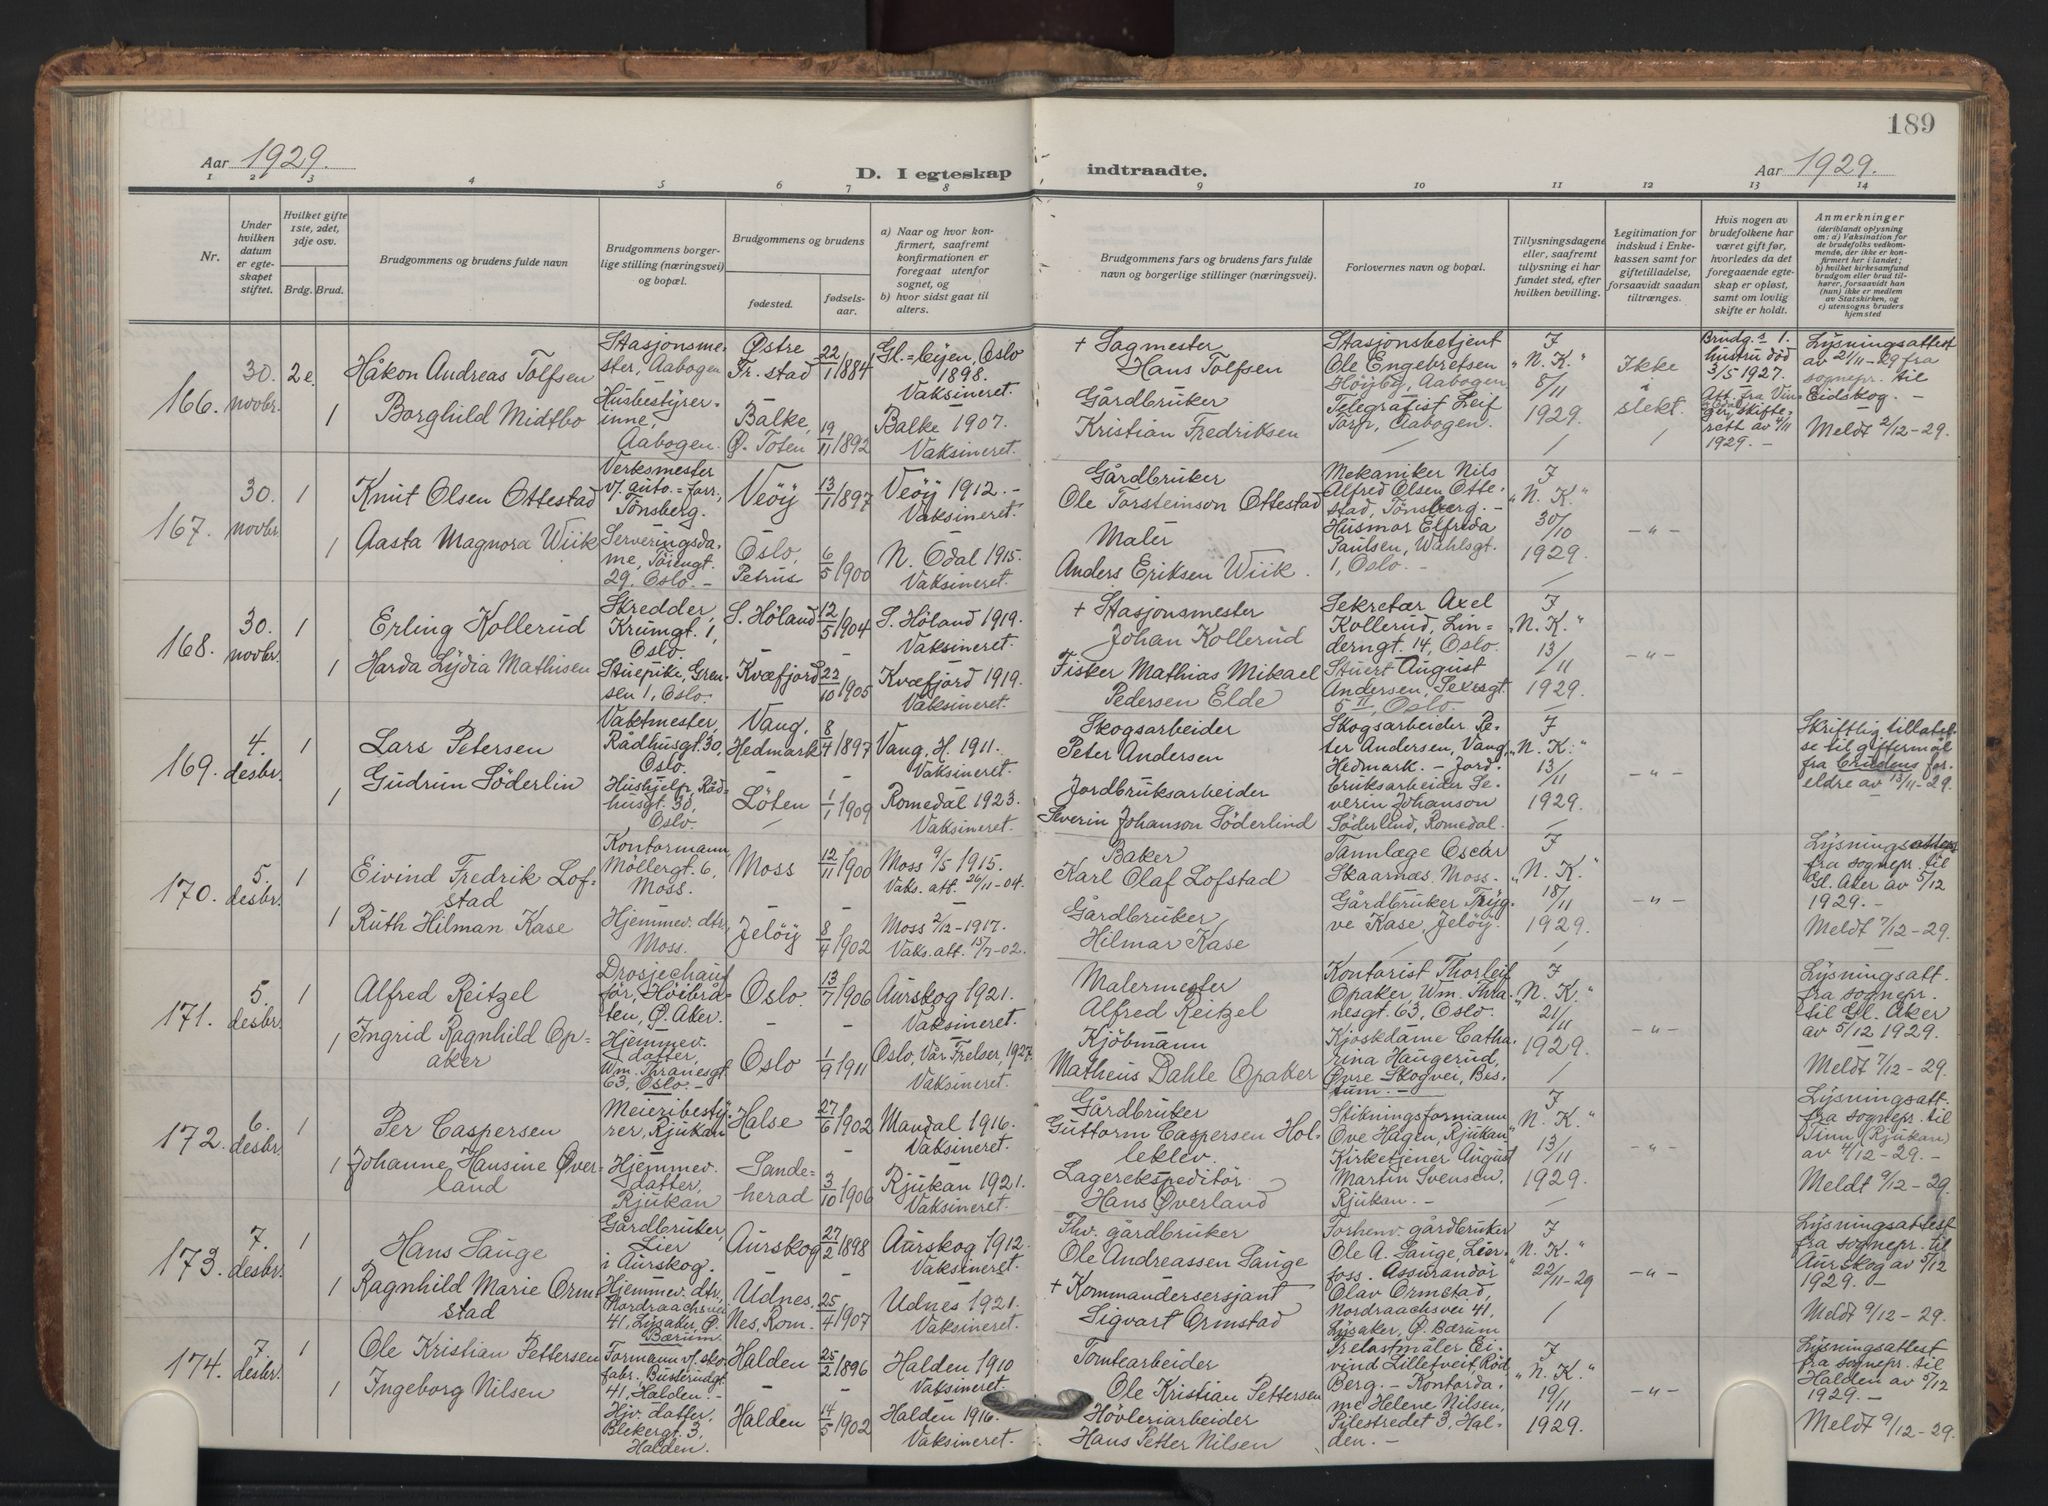 189
Aar 1929.
D. I egteskap indtraadte.
Aar 1929.
1 2 3 4 5 6 7 8 9 10 11 12 13 14
Nr.
Under hvilken datum er egteskapet stiftet.
Hvilket gifte 1ste, 2det, 3dje osv.
Brdg. Brud.
Brudgommens og brudens fulde navn
Brudgommens borgerlige stilling (næringsvei) og bopæl.
Brudgommens og brudens
fødested.
fødselsaar.
a) Naar og hvor konfirmert, saafremt konfirmationen er foregaat utenfor sognet, og
b) hvor sidst gaat til alters.
Brudgommens fars og brudens fars fulde navn og borgerlige stillinger (næringsvei).
Forlovernes navn og bopæl.
Tillysningsdagene eller, saafremt tillysning ei har fundet sted, efter hvilken bevilling.
Legitimation for indskud i Enkekassen samt for giftetilladelse, forsaavidt saadan tiltrænges.
Hvis nogen av brudefolkene har været gift før, hvorledes da det foregaaende egteskap er opløst, samt om lovlig skifte er holdt.
Anmerkninger (deriblandt oplysning om: a) Vaksination for de brudefolks vedkommende, der ikke er konfirmert her i landet; b) hvilket kirkesamfund brudgom eller brud tilhører, forsaavidt han (hun) ikke er medlem av Statskirken, og c) utensogns bruders hjemsted
166.
30. novbr.
2
Håkon Andreas Tolfsen
Stasjonsmester, Aabogen
Østre Fr.stad
22/1 1884
Oslo 1898. Vaksineret.
+ Sagmester
Hans Tolfsen
Stasjonsbetjent
Ole Engebretsen
Höyby, Aabogen
F
"N. K."
8/11
1929.
Ikke i slekt.
Brudg.s 1. hustru död 3/5 1927.
skifterett av 4/11 1929. –
Lysningsattest
av 21/11-29 fra
sognepr. til
Eidskog. –
Meldt 2/12-29.
1
Borghild Midtbo
Husbestyrerinne, Aabogen.
Balke, Ø. Toten
19/11 1892
Balke 1907. Vaksineret.
Gårdbruker
Kristian Fredriksen
Telegrafist Leif
Torp, Aabogen.
167.
30. novbr.
1
Knut Olsen Ottestad
Verksmester v/ auto.=forr., Tönsberg.
Veöy
13/7 1897
Veöy 1912. – Vaksineret.
Gårdbruker
Ole Torsteinson Ottestad
Mekaniker Nils
Alfred Olsen Ottestad, Tönsberg. –
F
"N. K."
30/10
1929.
– " –
1
Aasta Magnora Wiik
Serveringsdame, Töiengt. 29. Oslo. –
Oslo, Petrus
6/5 1900
N. Odal 1915. Vaksineret.
Maler
Anders Eriksen Wiik.
Husmor Elfreda
Paulsen, Wahlsgt.
1, Oslo. –
168.
30. novbr.
1
Erling Kollerud
Skredder, Krumgt. 1, Oslo.
S. Höland
12/5 1904
S. Höland 1919. Vaksineret.
+ Stasjonsmester
Johan Kollerud
Sekretær Axel
Kollerud, Linderngt. 14, Oslo.
F
"N. K."
13/11
1929.
– " –
1
Harda Lydia Mathisen
Stuepike, Grensen 1, Oslo.
Kvæfjord
22/10 1905
Kvæfjord 1919. Vaksineret.
Fisker Mathias Mikael
Pedersen Elde
Stuert August
Andersen, Sexesgt.
5 II, Oslo.
169.
4. desbr.
1
Lars Petersen
Vaktmester, Rådhusgt. 30, Oslo.
Vang, Hedmark
8/4 1897
Vang, H. 1911. Vaksineret.
Skogsarbeider
Peter Andersen
Skogsarbeider Peter Andersen, Vang,
Hedmark. –
F
"N. K."
13/11
1929.
– " –
Skriftlig tillatelse til giftermål
fra brudens foreldre av 13/11-29.
1
Gudrun Söderlin
Hushjelp, Rådhusgt. 30, Oslo.
Löten
1/1 1909
Romedal 1923. Vaksineret.
Jordbruksarbeider
Severin Johanson Söderlind
Jordbruksarbeider Severin Johanson
Söderlind, Romedal.
170.
5. desbr.
1
Eivind Fredrik Lofstad
Kontormann Möllergt. 6, Moss.
Moss
12/11 1900
Moss 9/5 1915. Vaks. att. 26/11-04.
Baker
Karl Olaf Lofstad
Tannlæge Oscar
Skaarnæs, Moss.
F
"N. K."
18/11
1929.
– " –
Lysningsattest
fra sognepr. til
Gl. Aker av 5/12
1929. –
Meldt 7/12-29.
1
Ruth Hilman Kase
Hjemmev. dtr, Moss.
Jelöy
8/4 1902
Moss 2/12-1917. Vaks. att. 15/7-02.
Gårdbruker
Hilmar Kase
Gårdbruker Trygve Kase, Jelöy.
171.
5. desbr.
1
Alfred Reitzel
Drosjechauffør, Höibråten, Ø. Aker.
Oslo.
13/7 1906
Aurskog 1921. Vaksineret.
Malermester
Alfred Reitzel
Kontorist Thorleif
Opaker, Wm. Thranesgt. 63, Oslo.
F
"N. K."
21/11
1929.
– " –
Lysningsatt.
fra sognepr.
til Gl. Aker
av 5/12 1929.
Meldt 7/12-29.
1
Ingrid Ragnhild Opaker
Hjemmev. datter, Wm. Thranesgt 63, Oslo. –
Oslo
1/9 1911
Oslo, Vår Frelser, 1927. Vaksineret.
Kjöbmann
Matheus Dahle Opaker
Kjoskdame Catharina Haugerud,
Øvre Skogvei, Bestum. –
172.
6. desbr.
1
Per Caspersen
Meieribestyrer, Rjukan
Halse
27/6 1902
Mandal 1916. Vaksineret.
Gårdbruker
Guttorm Caspersen Holleklev.
Stikningsformann
Ove Hagen, Rjukan
F
"N. K."
13/11
1929.
– " –
Lysningsatt.
fra sognepr. til
Tinn (Rjukan)
av 4/12-29. –
Meldt 9/12-29.
1
Johanne Hansine Øverland
Hjemmev. datter, Rjukan
Sandeherad
3/10 1906
Rjukan 1921. Vaksineret.
Lagerekspeditör
Hans Øverland
Kirketjener August
Martin Svensen,
Rjukan. –
173.
7. desbr.
1
Hans Sauge
Gårdbruker, Lier i Aurskog.
Aurskog
27/2 1898
Aurskog 1912. Vaksineret.
Fhv. gårdbruker
Ole Andreassen Sauge
Forhenv. gårdbruker
Ole A. Sauge, Lierfoss.
F
"N. K."
22/11-29
– " –
Lysningsattest
fra sognepr. til
Aurskog av 5/12
1929. –
Meldt 9/12-29.
1
Ragnhild Marie Ormstad
Hjemmev. dtr, Nordraachsvei 41, Lysaker, Ø. Bærum.
Udnes, Nes, Rom.
25/4 1907
Udnes 1921. Vaksineret.
+ Kommandersersjant
Sigvart Ormstad
Assurandör
Olav Ormstad,
Nordraachsvei 41,
Lysaker, Ø. Bærum
174.
7. desbr.
1
Ole Kristian Pettersen
Formann v/ skofabr. Busterudgt. 41, Halden. –
Halden
25/2 1896
Halden 1910 Vaksineret.
Tomtearbeider
Ole Kristian Pettersen
Trelastmåler Eivind Lilletveit, Röd,
Berg. –
F
"N. K."
19/11
1929.
– " –
Lysningsattest
fra sognepr. til
Halden av 5/12
1929. –
Meldt 9/12-29.
1
Ingeborg Nilsen
Hjv. datter, Blekergt. 3, Halden.
Halden
14/5 1902
Halden 1916. Vaksineret.
Hövleriarbeider
Hans Petter Nilsen
Kontordame Helene Nilsen,
Pilestredet 3, Halden. –